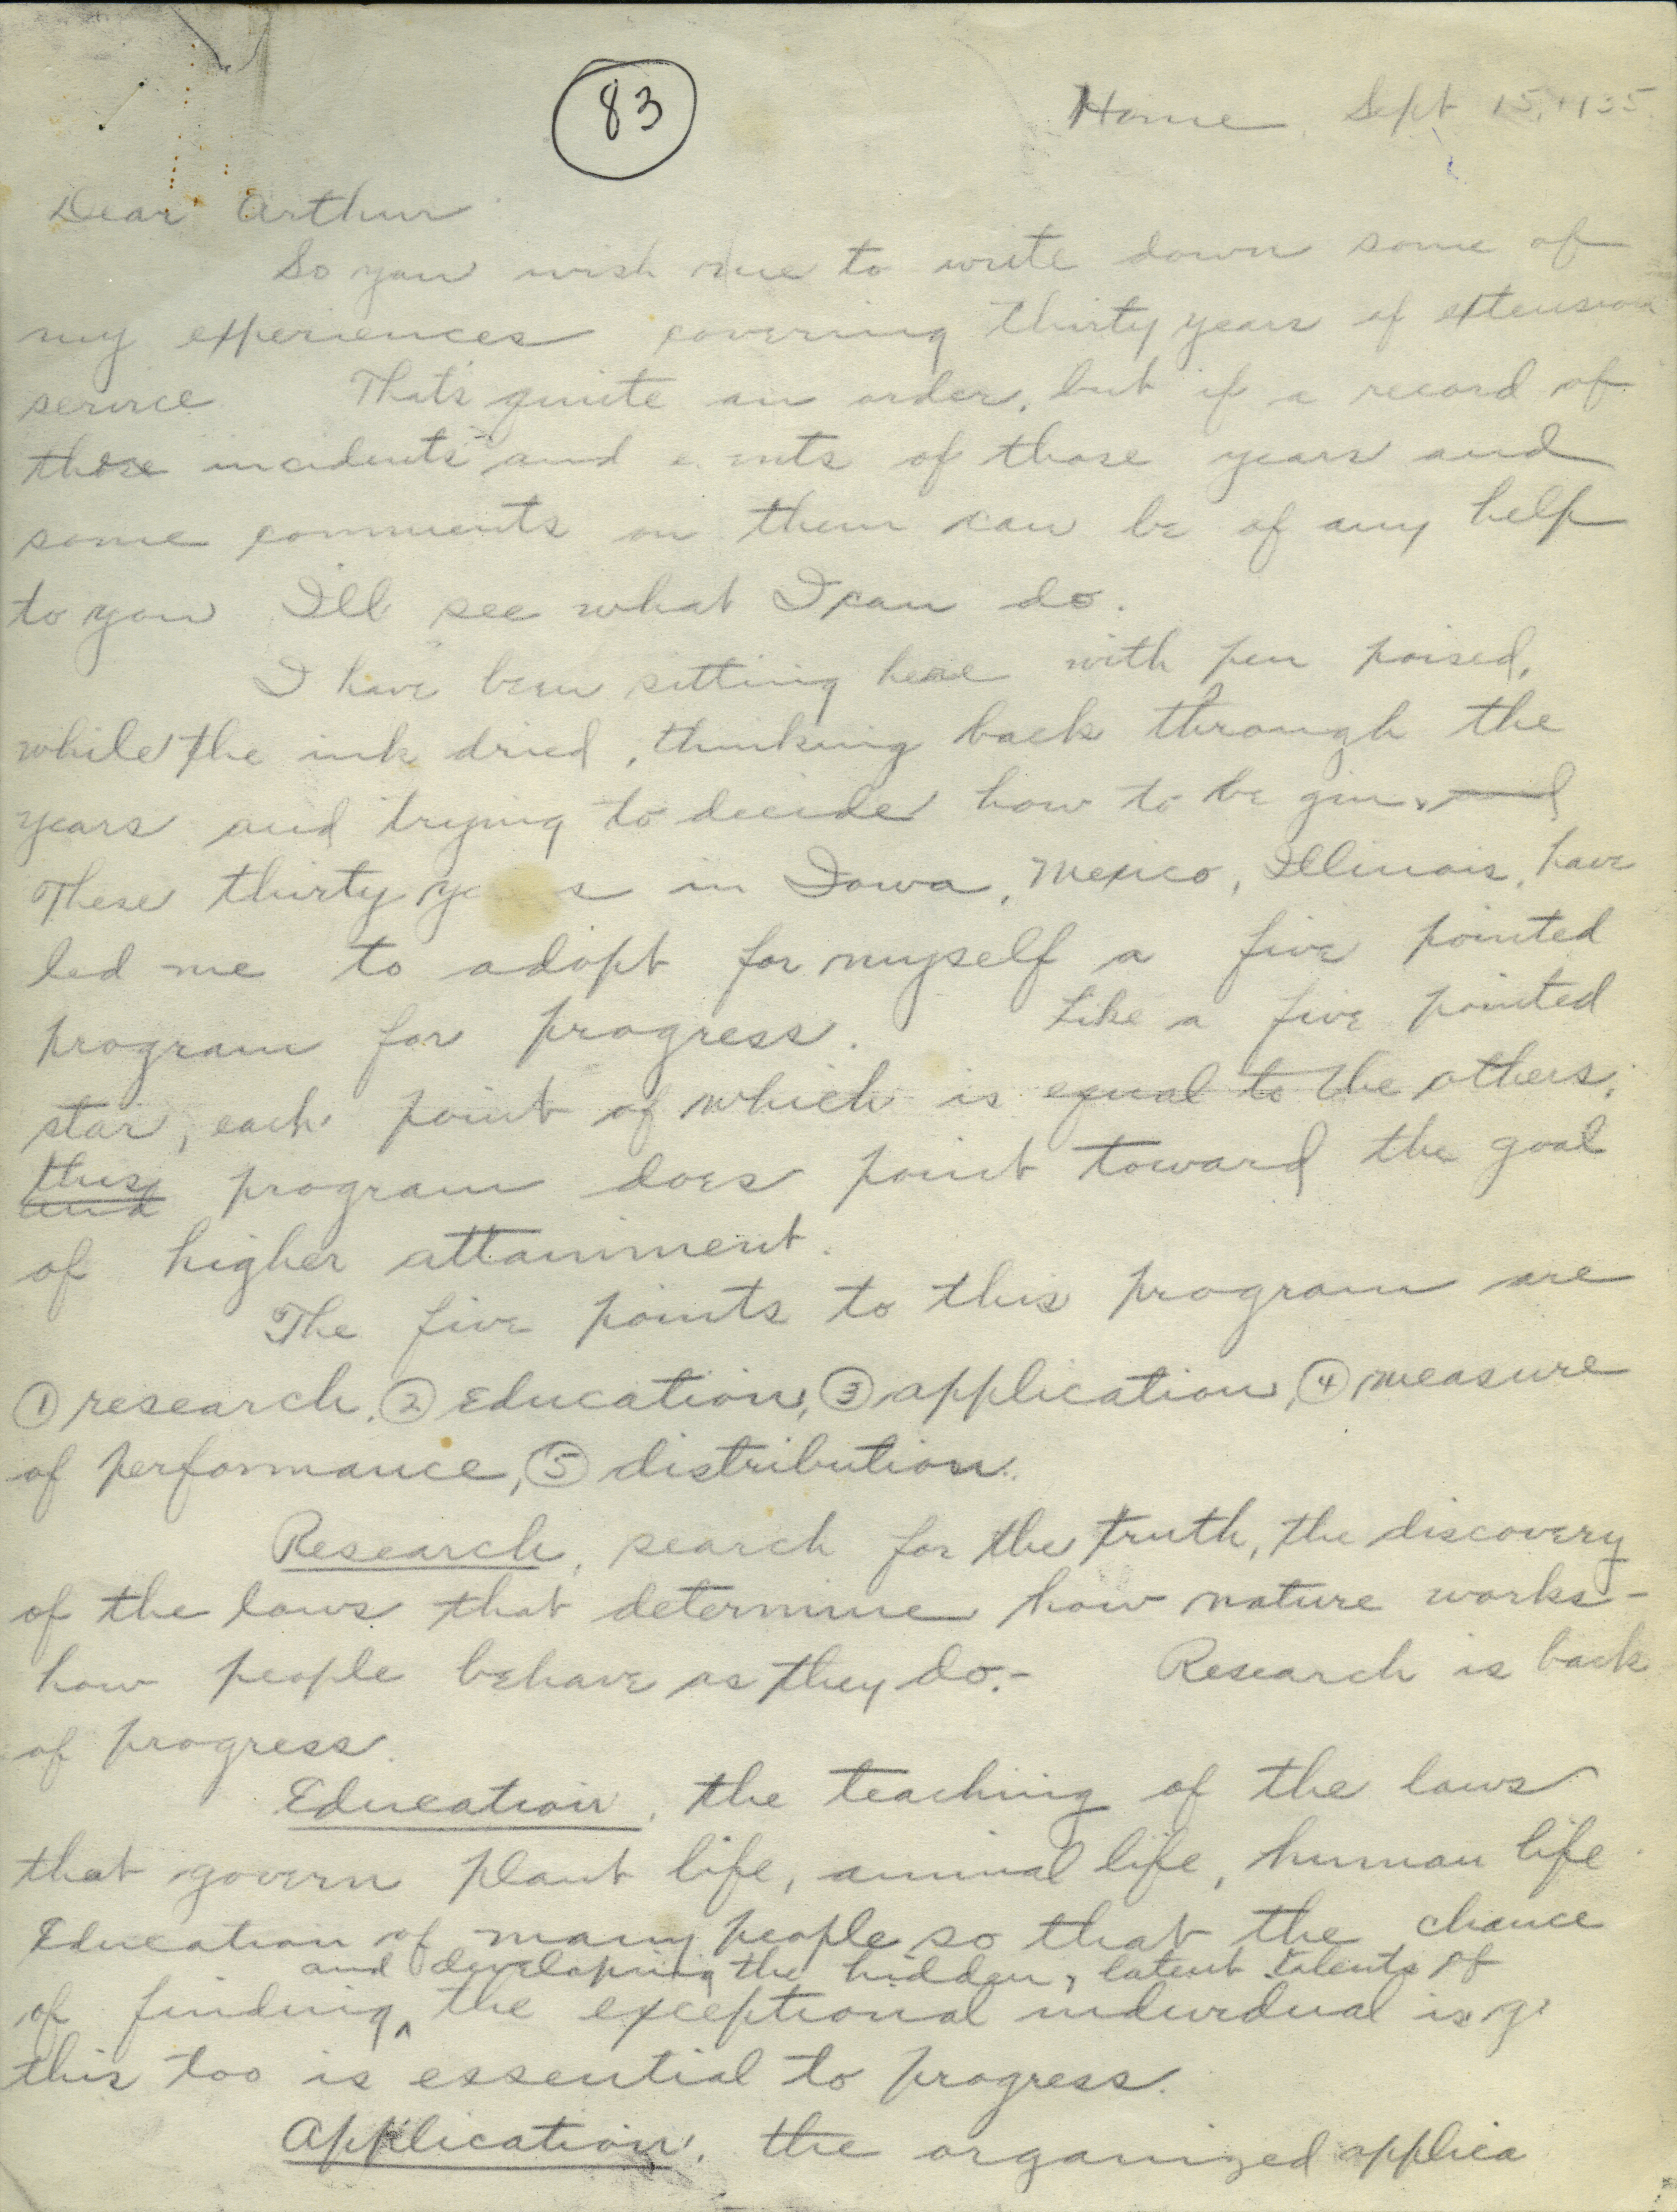 83
Home, Sept 15, 1935
Dear Arthur
So you wish me to write down some of
my experiences covering thirty years of extension
service Thats quite an order, but if a record of
those incidents and of those years and
some comments on them can be of any help
to you I'll see what I can do.
I have been sitting here with pen poised,
while the ink dried, thinking back through the
years and trying to decide how to begin. and
These thirty ye s in Iowa, Mexico, Illinois, have
led me to adopt for myself a five pointed
program for progress. Like a five pointed
star, each point of which is equal to the others,
this
and program does point toward the goal
of higher attainment.
The five points to this program are
① research, ② Education, ③ application, ④ measure
of performance, ⑤ distribution.
Research, search for the truth, the discovery
of the laws that determine how nature works -
how people behave as they do. - Research is back
of progress.
Education, the teaching of the laws
that govern plant life, animal life, human life
Education of many people so that the chance
and developing the hidden, latent talents of
of finding ^ the exceptional individual is
this too is essential to progress.
Application, the organized applica